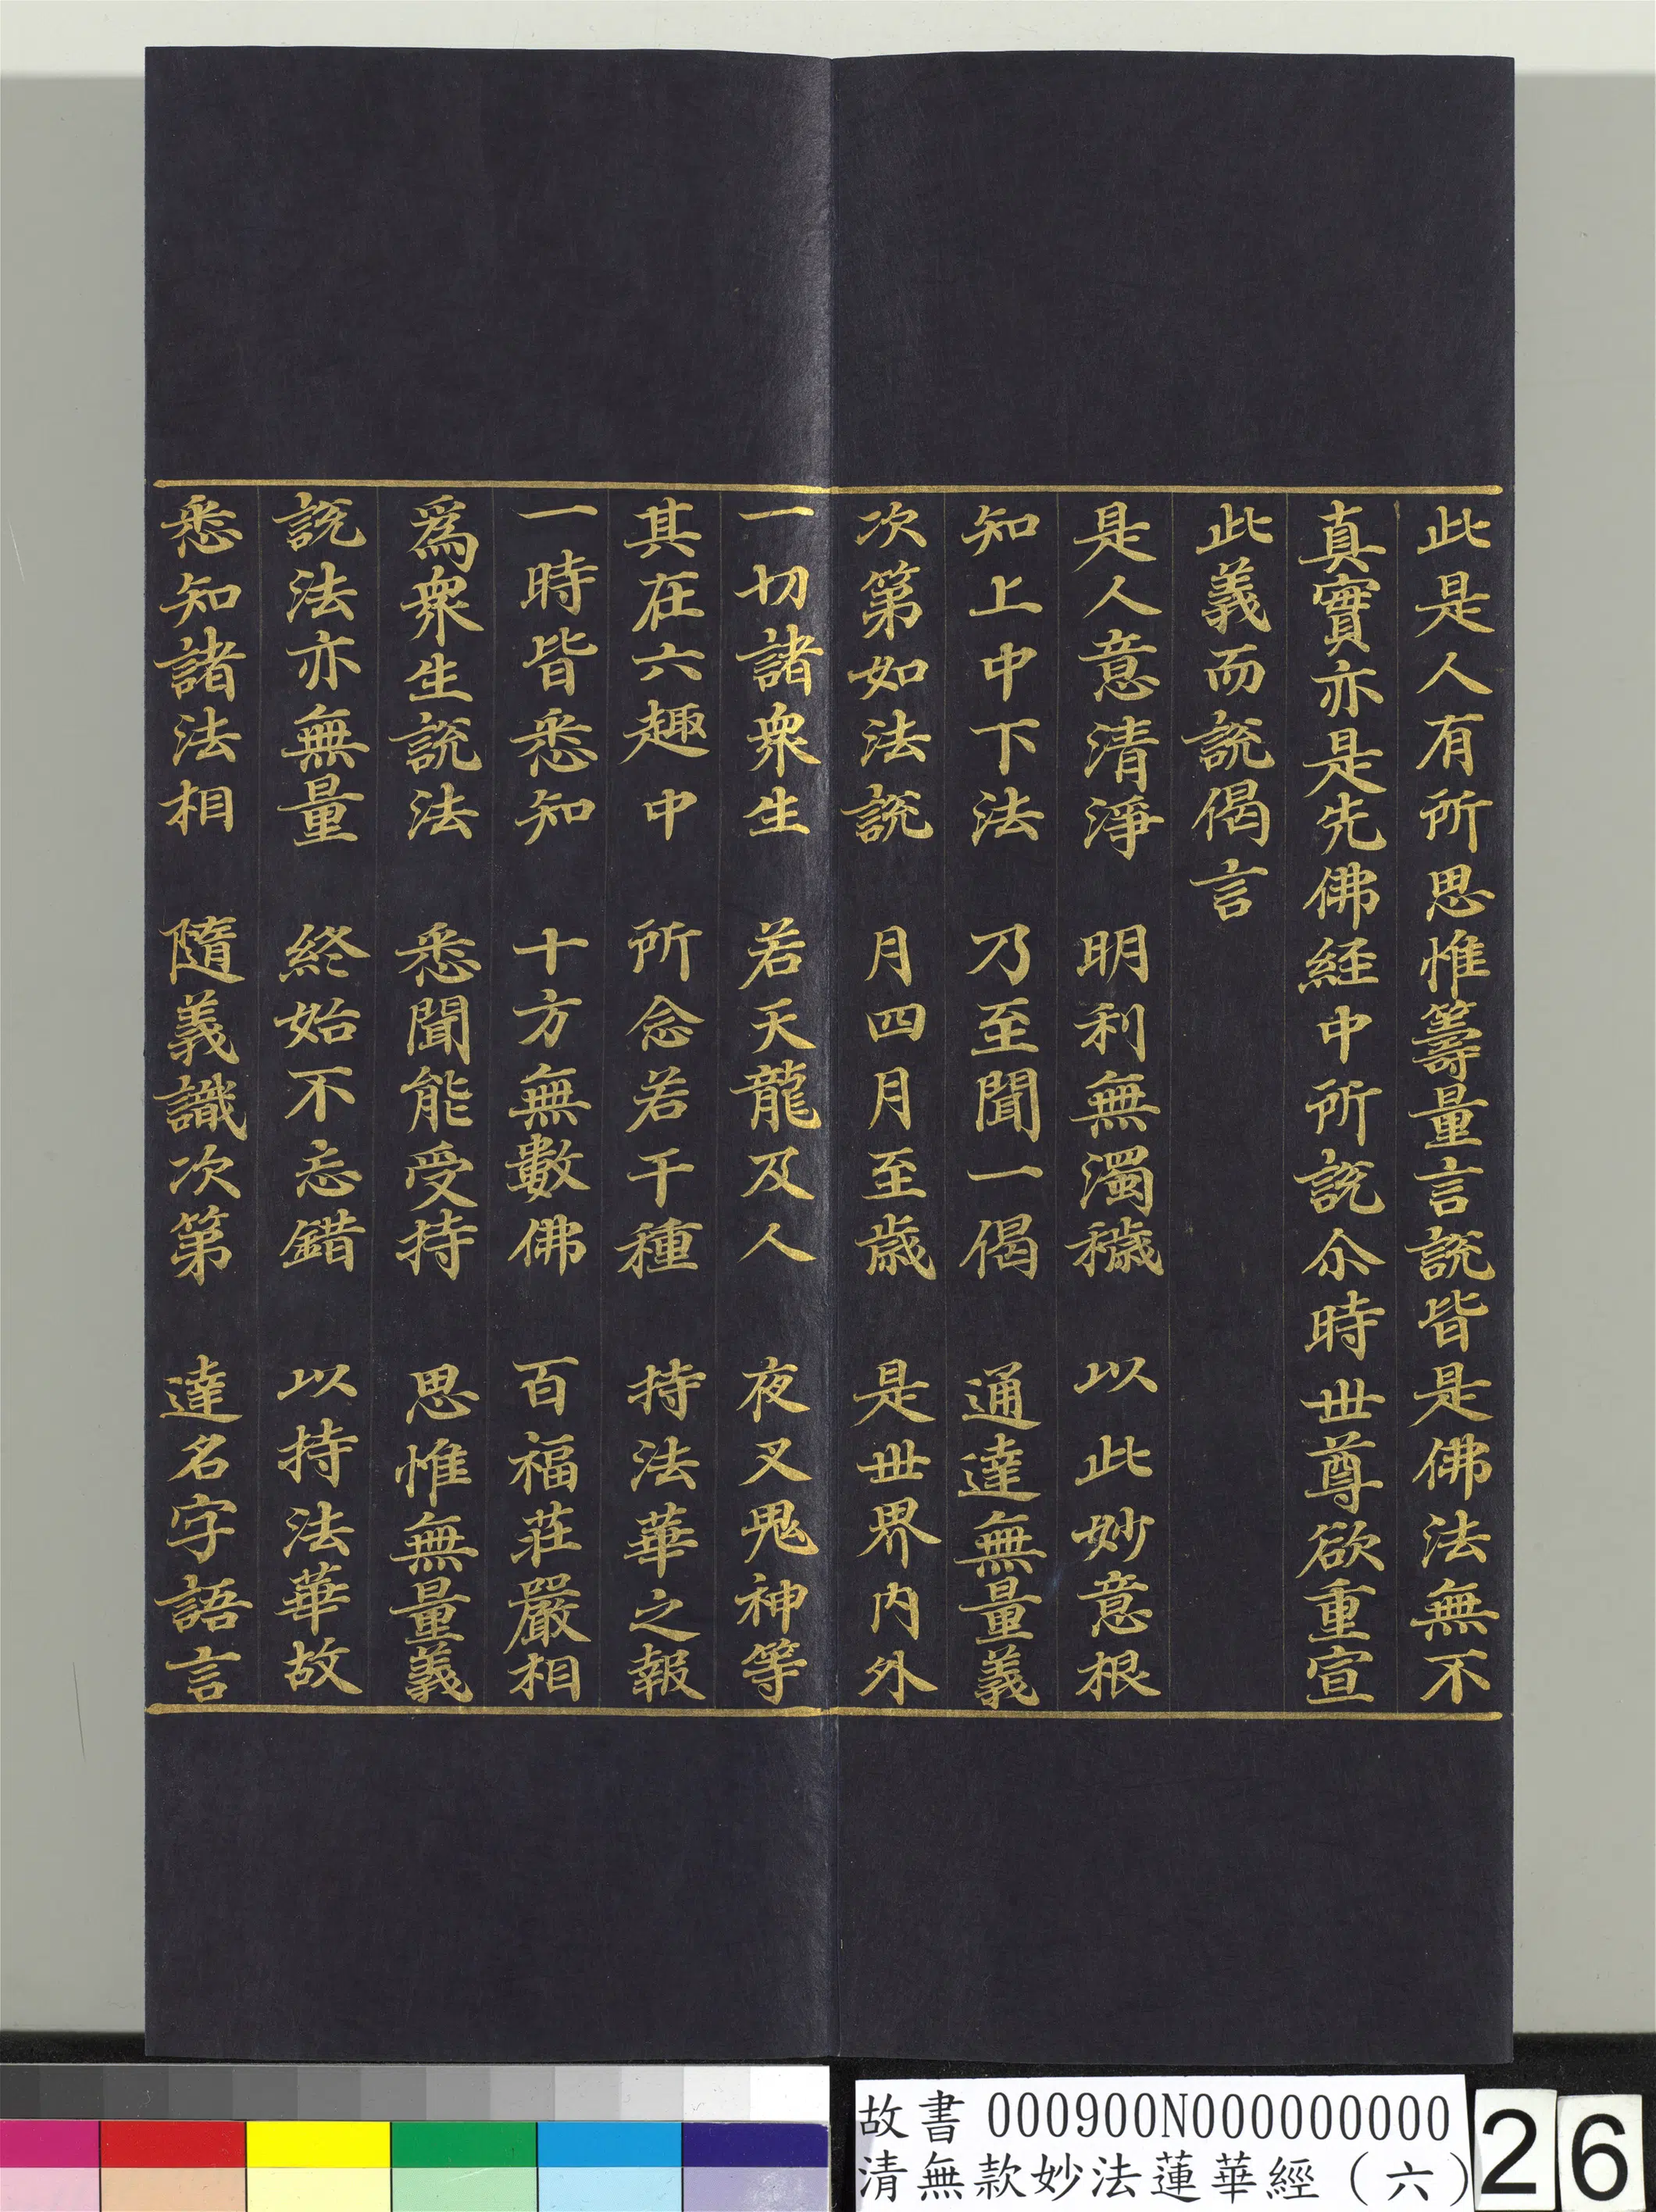 此是人有所思惟籌量言說皆是佛法無不
真實亦是先佛経中所說尒時世尊欲重宣
此義而說偈言
是人意清淨　明利無濁穢　以此妙意根
知上中下法　乃至聞一偈　通達無量義
次第如法說　月四月至歲　是世界内外
一切諸衆生　若天龍及人　夜叉鬼神等
其在六趣中　所念若干種　持法華之報
一時皆悉知　十方無數佛　百福莊嚴相
爲衆生說法　悉聞能受持　思惟無量義
說法亦無量　終始不忘錯　以持法華故
悉知諸法相　隨義識次第　達名字語言
故書 000900N000000000
清無款妙法蓮華經（六）
26